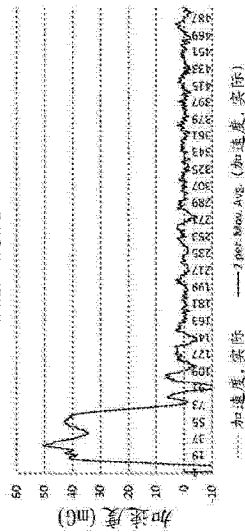 加速度 (mG)
60
50
40
30
20
10
0
-10
1
19
37
55
73
91
109
127
145
163
181
199
217
235
253
271
289
307
325
343
361
379
397
415
433
451
469
487
加速度, 实际 2 per. Mov. Avg. (加速度, 实际)